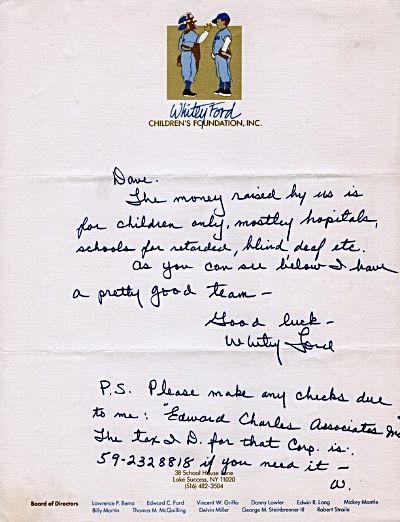 Whitey Ford
CHILDREN'S FOUNDATION, INC.
Dave.
The money raised by us is
for children only, mostley hopitals,
schools for retarded, blind deaf etc.
As you can see below I have
a pretty good team –
Good luck –
Whitey Ford
P.S. Please make any checks due
to me: "Edward Charles Associates Inc"
The tax I D. for that Corp. is:
59-2328818 if you need it –
W.
38 School House Lane
Lake Success, NY 11020
(516) 482-3504
Board of Directors Lawrence P. Berra Edward C. Ford Vincent W. Griffo Danny Lawler Edwin R. Long Mickey Mantle
Billy Martin Thomas M. McQuilling Delvin Miller George M. Steinbrenner III Robert Straile